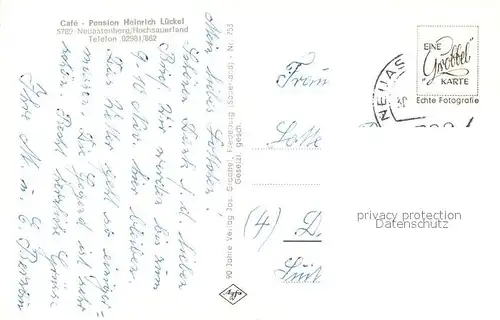 Café - Pension Heinrich Lückel
5789 Neuastenberg/Hochsauerland
Telefon 02981/862
Mein liebes Lottchen!
Schönen Dank f. d. lieben
Brief. Wir werden bis zum
9-10 Nov. hier bleiben.
Das Wetter geht so einiger-
massen. Die Gegend ist sehr
schön. Recht herzliche Grüsse
Ihre M. u. E.
90 Jahre Verlag Jos. Grobbel, Fredeburg (Sauerland) - Nr. 753
Gesetzl. gesch.
Agfa
EINE
"Grobbel"
KARTE
Echte Fotografie
NEUAS
Frau
(4) D
privacy protection
Datenschutz